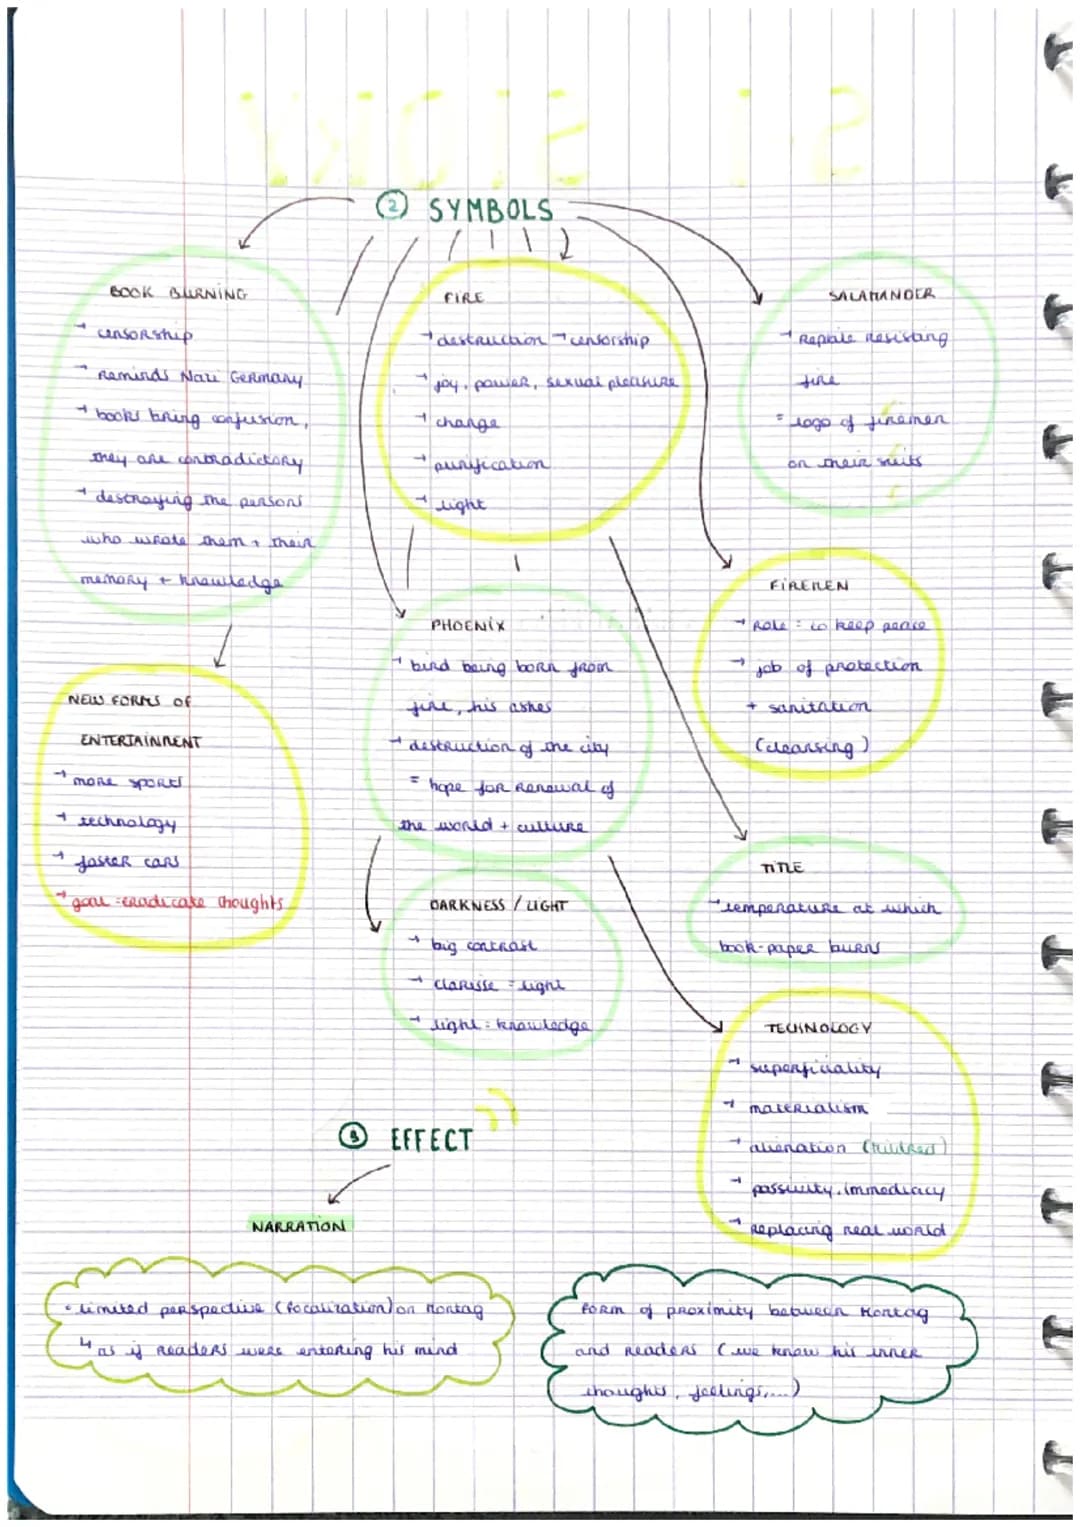 ② SYMBOLS
BOOK BURNING
→ censorship
→ reminds Nazi Germany
→ books bring confusion,
they are contradictory
→ destroying the persons
who wrote them + their
memory + knowledge
NEW FORMS OF
ENTERTAINMENT
→ more sports
→ technology
→ faster cars
→ goal = eradicate thoughts
FIRE
→ destruction → censorship
→ joy, power, sexual pleasure
→ change
→ purification
→ light
PHOENIX
→ bird being born from
fire, his ashes
→ destruction of the city
= hope for renewal of
the world + culture
DARKNESS / LIGHT
→ big contrast
→ Clarisse = light
→ light = knowledge
SALAMANDER
→ Reptile resisting
fire
= logo of firemen
on their suits
FIREMEN
→ Role = to keep peace
→ job of protection
+ sanitation
(cleansing)
TITLE
→ temperature at which
book-paper burns
TECHNOLOGY
→ superficiality
→ materialism
→ alienation (Mildred)
→ passivity, immediacy
→ replacing real world
③ EFFECT
NARRATION
• limited perspective (focalization) on Montag
↳ as if readers were entering his mind
form of proximity between Montag
and readers (we know his inner
thoughts, feelings,...)